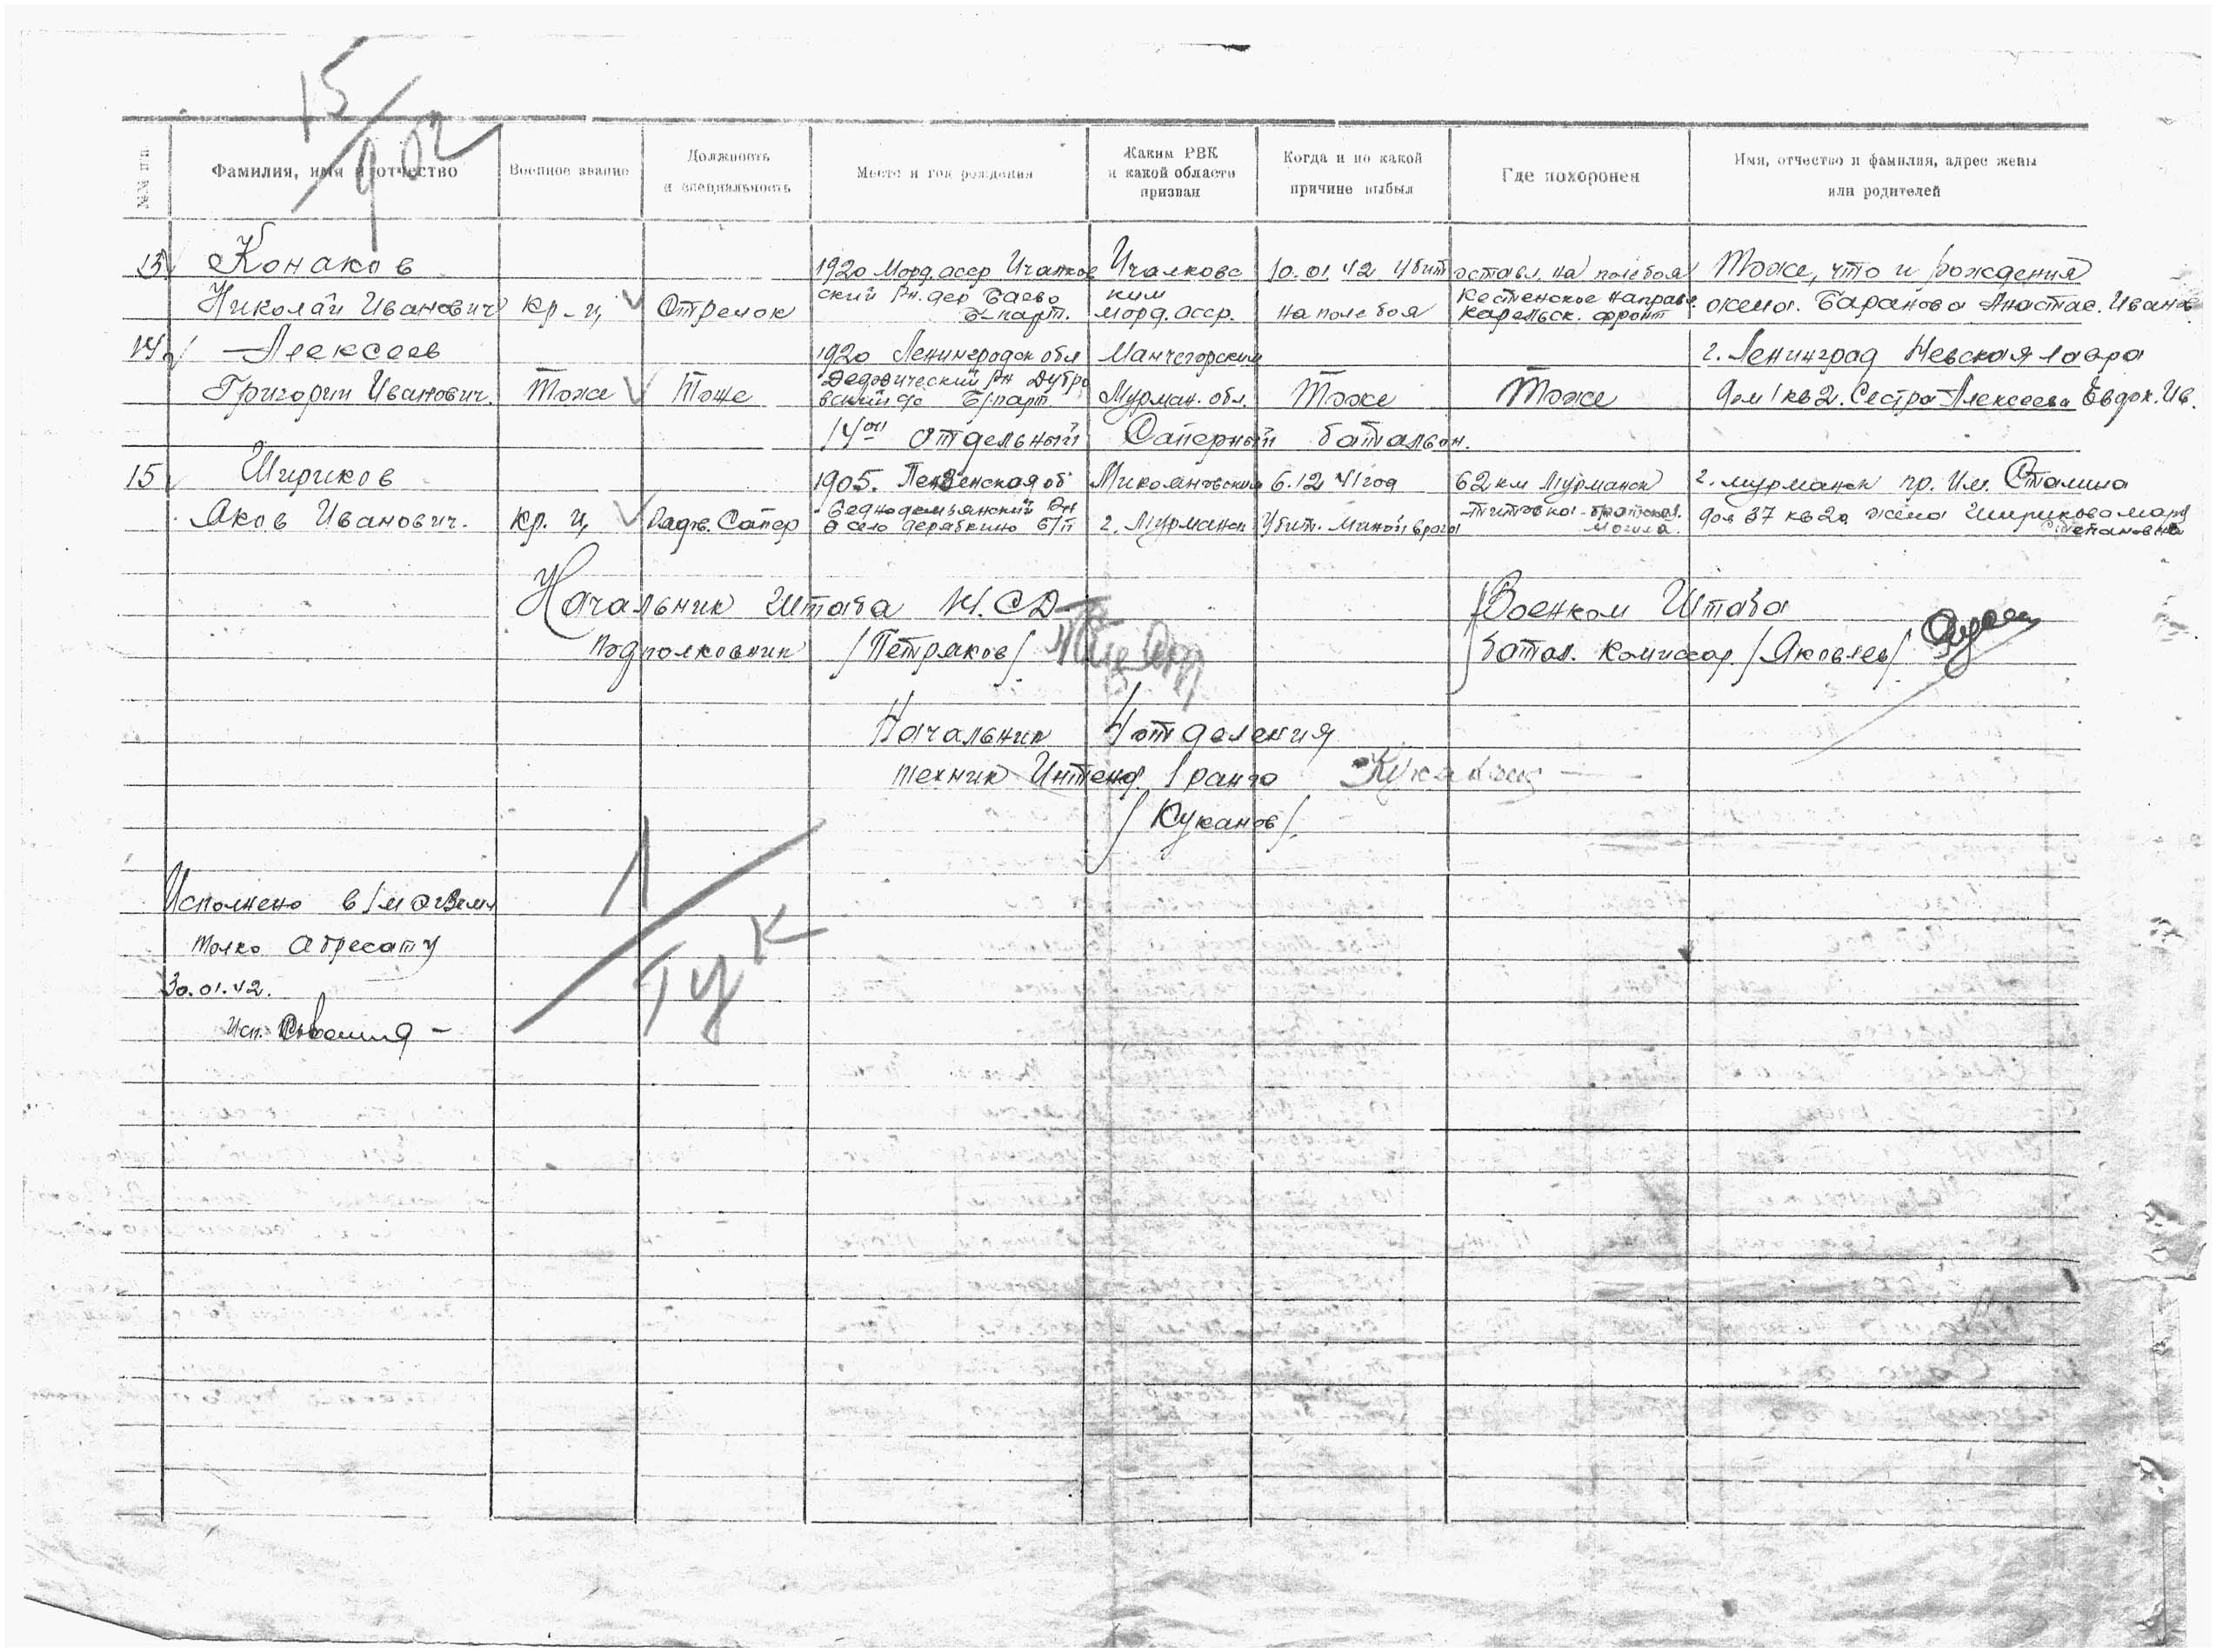 15/902
№№ пп
Фамилия, имя и отчество
Военное звание
Должность
и специальность
Место и год рождения
Каким РВК
и какой области
призван
Когда и по какой
причине выбыл
Где похоронен
Имя, отчество и фамилия, адрес жены
или родителей
13 Конаков 1920 Морд. асср Ичалков Ичалковс 10.01.42 Убит оставл. на поле боя Тоже, что и рождения
Николай Иванович кр-ц Стрелок ский рн. дер Баево ким на поле боя Кестенское направ. жена. Баранова Анастас. Иванов
Б-парт. морд. асср. Карельск. фронт
14 Алексеев 1920 Ленинградск обл Манчегорским г. Ленинград Невская лавра
Григории Иванович. Тоже Тоже Дедовический рн Дубро Мурман. обл. Тоже Тоже дом 1 кв 2. Сестра Алексеева Евдок. Ив.
вский Б/парт.
14ый Отдельный Саперный батальон.
15 Шириков 1905. Пензенская об Микояновским 6.12 41 год 62 км Мурманск г. Мурманск пр. Им. Сталина
Яков Иванович. кр. ц Рядв. Сапер Беднодемьянский Рн г. Мурманск Убит. миной врага Титовка братская дом 37 кв 20 жена Ширикова мария
село дерябкино б/п могила. Степановна
Начальник Штаба СД Военком Штаба
Подполковник /Петраков/ батал. комиссар /Яковлев/
Начальник 4 отделения
техник Интенд. 1 ранга
/Куканов/.
Исполнено в 1м экземп
толко адресату
30.01.42.
Исп.